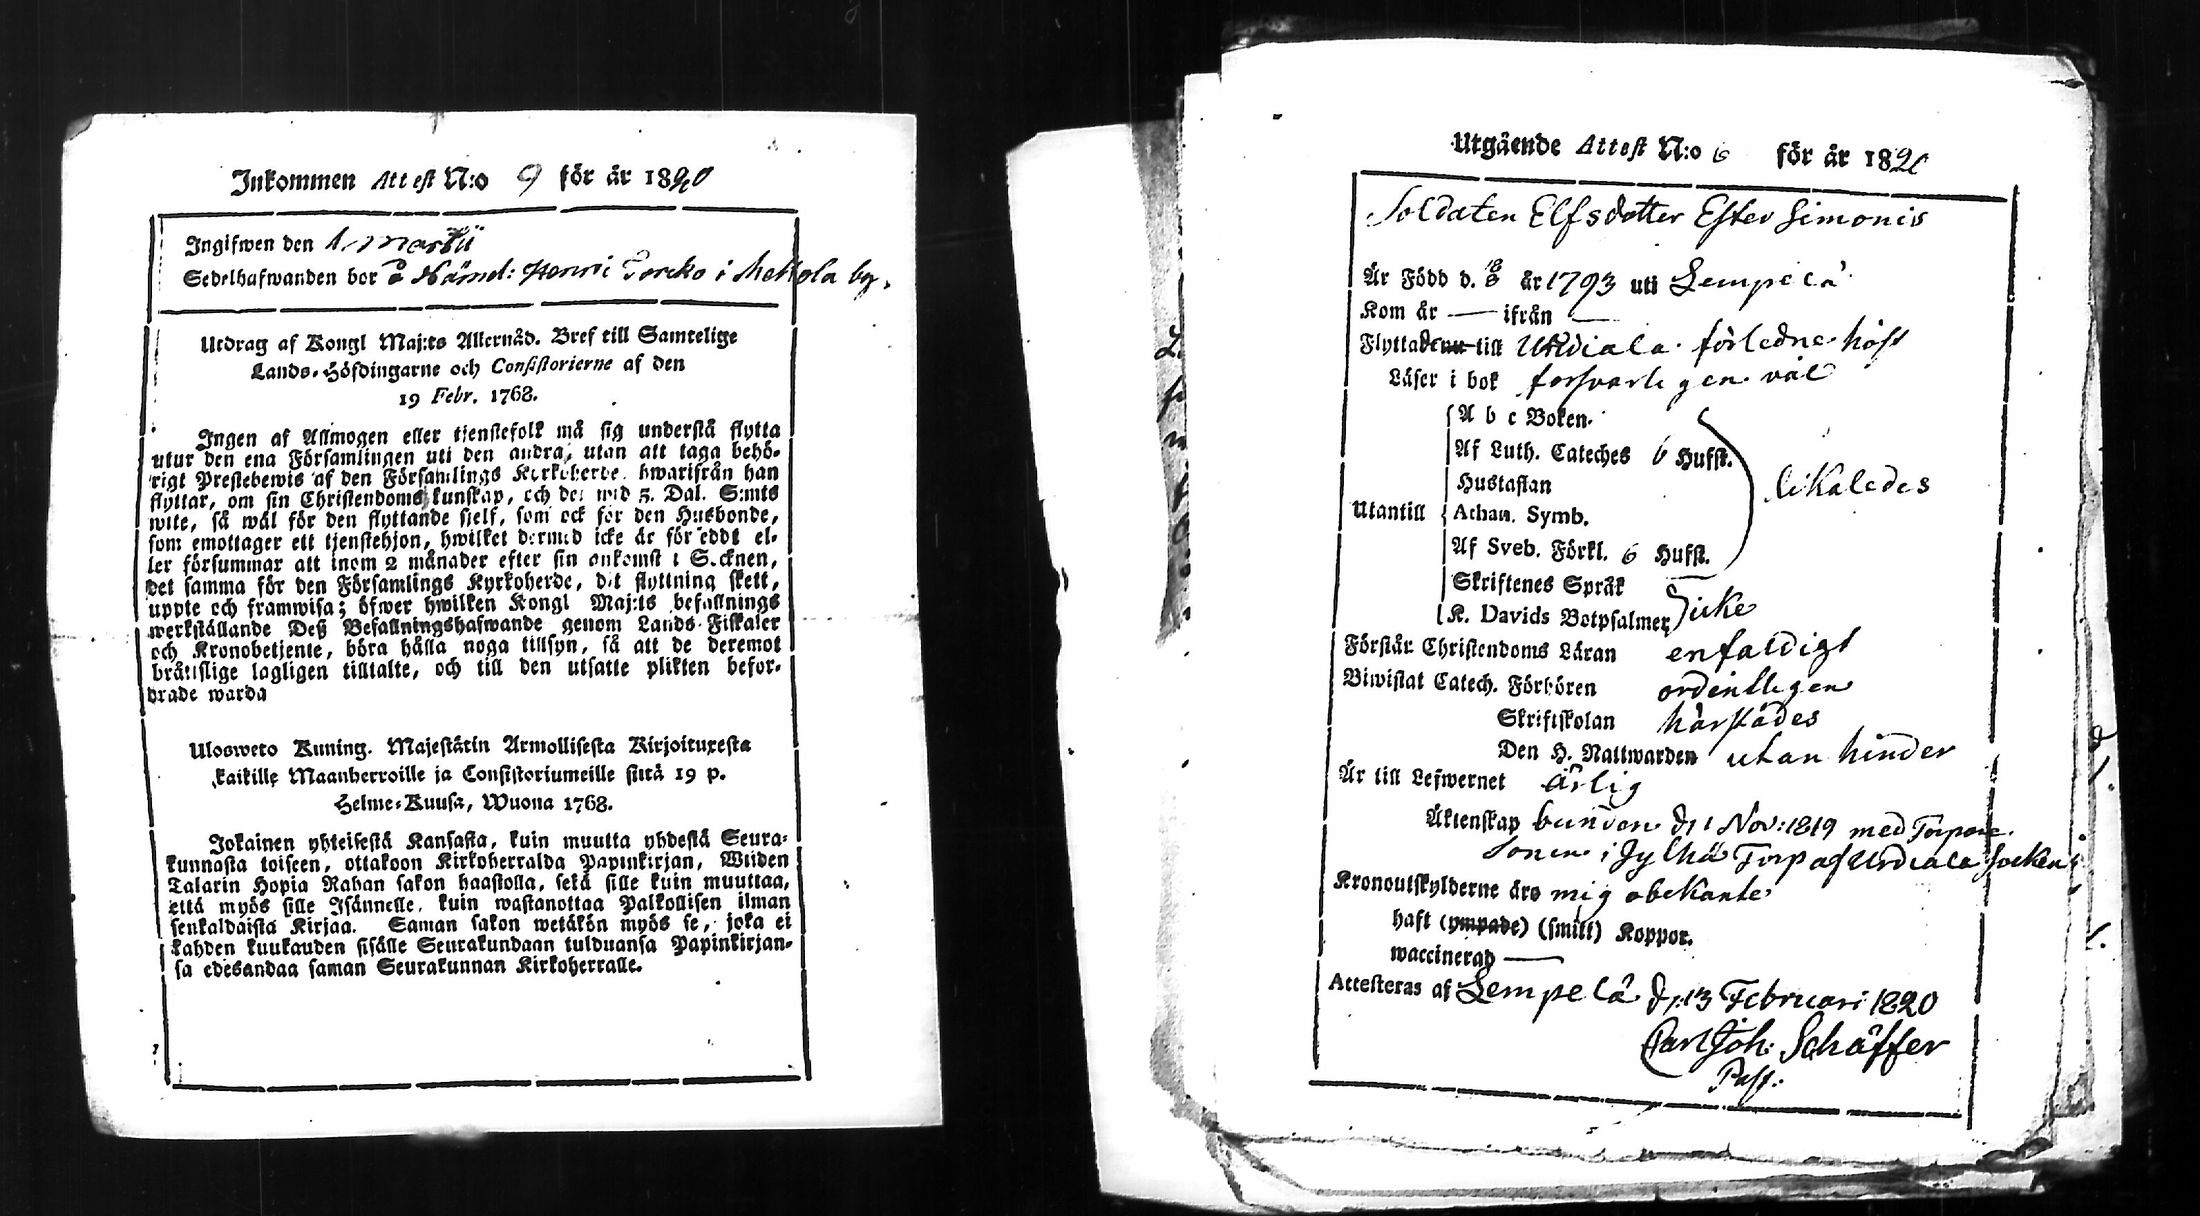 Inkommen Attest N:o 9 för år 1820
Ingifwen den 1. Martii
Sedelhafwanden bor å Nämd: Henri i Mellola by.
Utdrag af Kongl Maj:ts Allernåd. Bref till Samtelige
Lands-Höfdingarne och Consistorierne af den
19 Febr. 1768.
Ingen af Allmogen eller tjenstefolk må sig understå flytta
utur den ena Församlingen uti den andra, utan att taga behö-
rigt Prestebewis af den Församlings Kyrkoherde, hwarifrån han
flyttar, om sin Christendoms kunskap, och det wid 5. Dal. S:mts
wite, så wäl för den flyttande sjelf, som ock för den Husbonde,
som emottager ett tjenstehjon, hwilket dermed icke är förseddt el-
ler försummar att inom 2 månader efter sin ankomst i Socknen,
det samma för den Församlings Kyrkoherde, dit flyttning skett,
uppte och framwisa; öfwer hwilken Kongl Maj:ts befallnings
werkställande Deß Befallningshafwande genom Lands-Fiskaler
och Kronobetjente, böra hålla noga tillsyn, så att de deremot
bråttslige lagligen tilltalte, och till den utsatte plikten befor-
drade warda
Ulosweto Kuning. Majestätin Armollisesta Kirjoituxesta
kaikille Maanherroille ja Consistoriumeille siitä 19 p.
Helme-Kuusa, Wuona 1768.
Jokainen yhteisestä Kansasta, kuin muutta yhdestä Seura-
kunnasta toiseen, ottakoon Kirkoherralda Papinkirjan, Wiiden
Talarin Hopia Rahan sakon haastolla, sekä sille kuin muuttaa,
että myös sille Isännelle, kuin wastanottaa Palkollisen ilman
senkaldaista Kirjaa. Saman sakon wetäkön myös se, joka ei
kahden kuukauden sisälle Seurakundaan tulduansa Papinkirjan-
sa edesandaa saman Seurakunnan Kirkoherralle.
Utgående Attest N:o 6 för år 1820
Soldaten Elfs dotter Ester Simonis
Är Född d. år 1793 uti Lempelä
Kom år — ifrån —
Flyttade till Urdiala förledne höst
Läser i bok försvarligen väl
A b c Boken.
Af Luth. Cateches 6 Hufst.
Hustaflan
likaledes
Utantill
Athan. Symb.
Af Sveb. Förkl. 6 Hufst.
Skriftenes Språk
K. Davids Botpsalmer
icke
Förstår Christendoms Läran enfaldigt
Biwistat Catech. Förhören ordentligen
Skriftskolan härstädes
Den H. Nattwarden utan hinder
Är till Lefwernet ärlig
Äktenskap bunden d. 1 Nov: 1819 med Torpare
Sonen i Jylhä Torp af Urdiala Socken
Kronoutskylderne äro mig obekante
haft (ympade) (smitt) Koppor.
waccinerad —
Attesteras af Lempelä d. 13 Februari 1820
Carl Joh: Schäffer
Past: